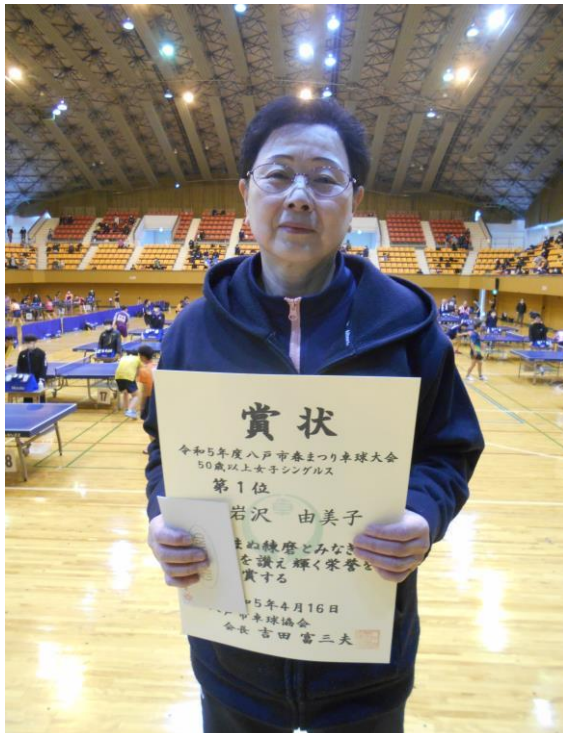 賞状
令和5年度八戸市春まつり卓球大会
50歳以上女子シングルス
第1位
岩沢 由美子
まぬ練磨とみなぎ
を讃え輝く栄誉を
賞する
和5年4月16日
戸市卓球協会
会長 吉田 富三夫